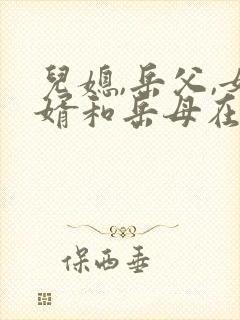 兒媳,岳父,女
婿和岳母在
保西垂